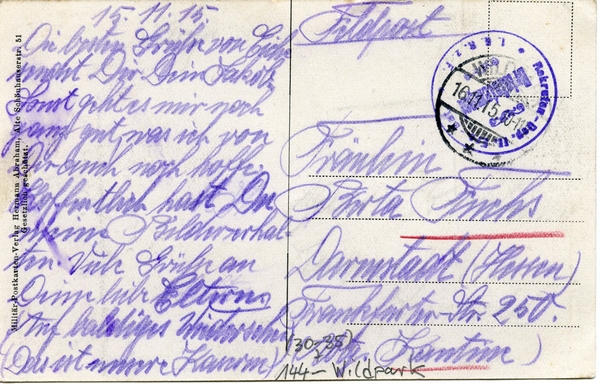 15.11.15.
Die besten Grüße von hier
sendet Dir Dein Jakob
Sonst geht es mir noch
ganz gut, was ich von
Dir auch noch hoffe.
Hoffentlich hast Du
meine Bilder erhal-
ten. Viele Grüße an
Deine liebe Eltern
Auf baldiges Wiedersehen
(Das ist unsere Kaserne)
Militär-Postkarten-Verlag Hermann Abraham, Alte Schönhauserstr. 51
Gesetzlich geschützt.
Feldpost
16.11.15.10-11
Rekruten-Dep.
Fräulein
Berta Fuchs
Darmstadt (Hessen)
Frankfurter-Str. 250.
(Kantine)
(30-35)
144 - Wildpark